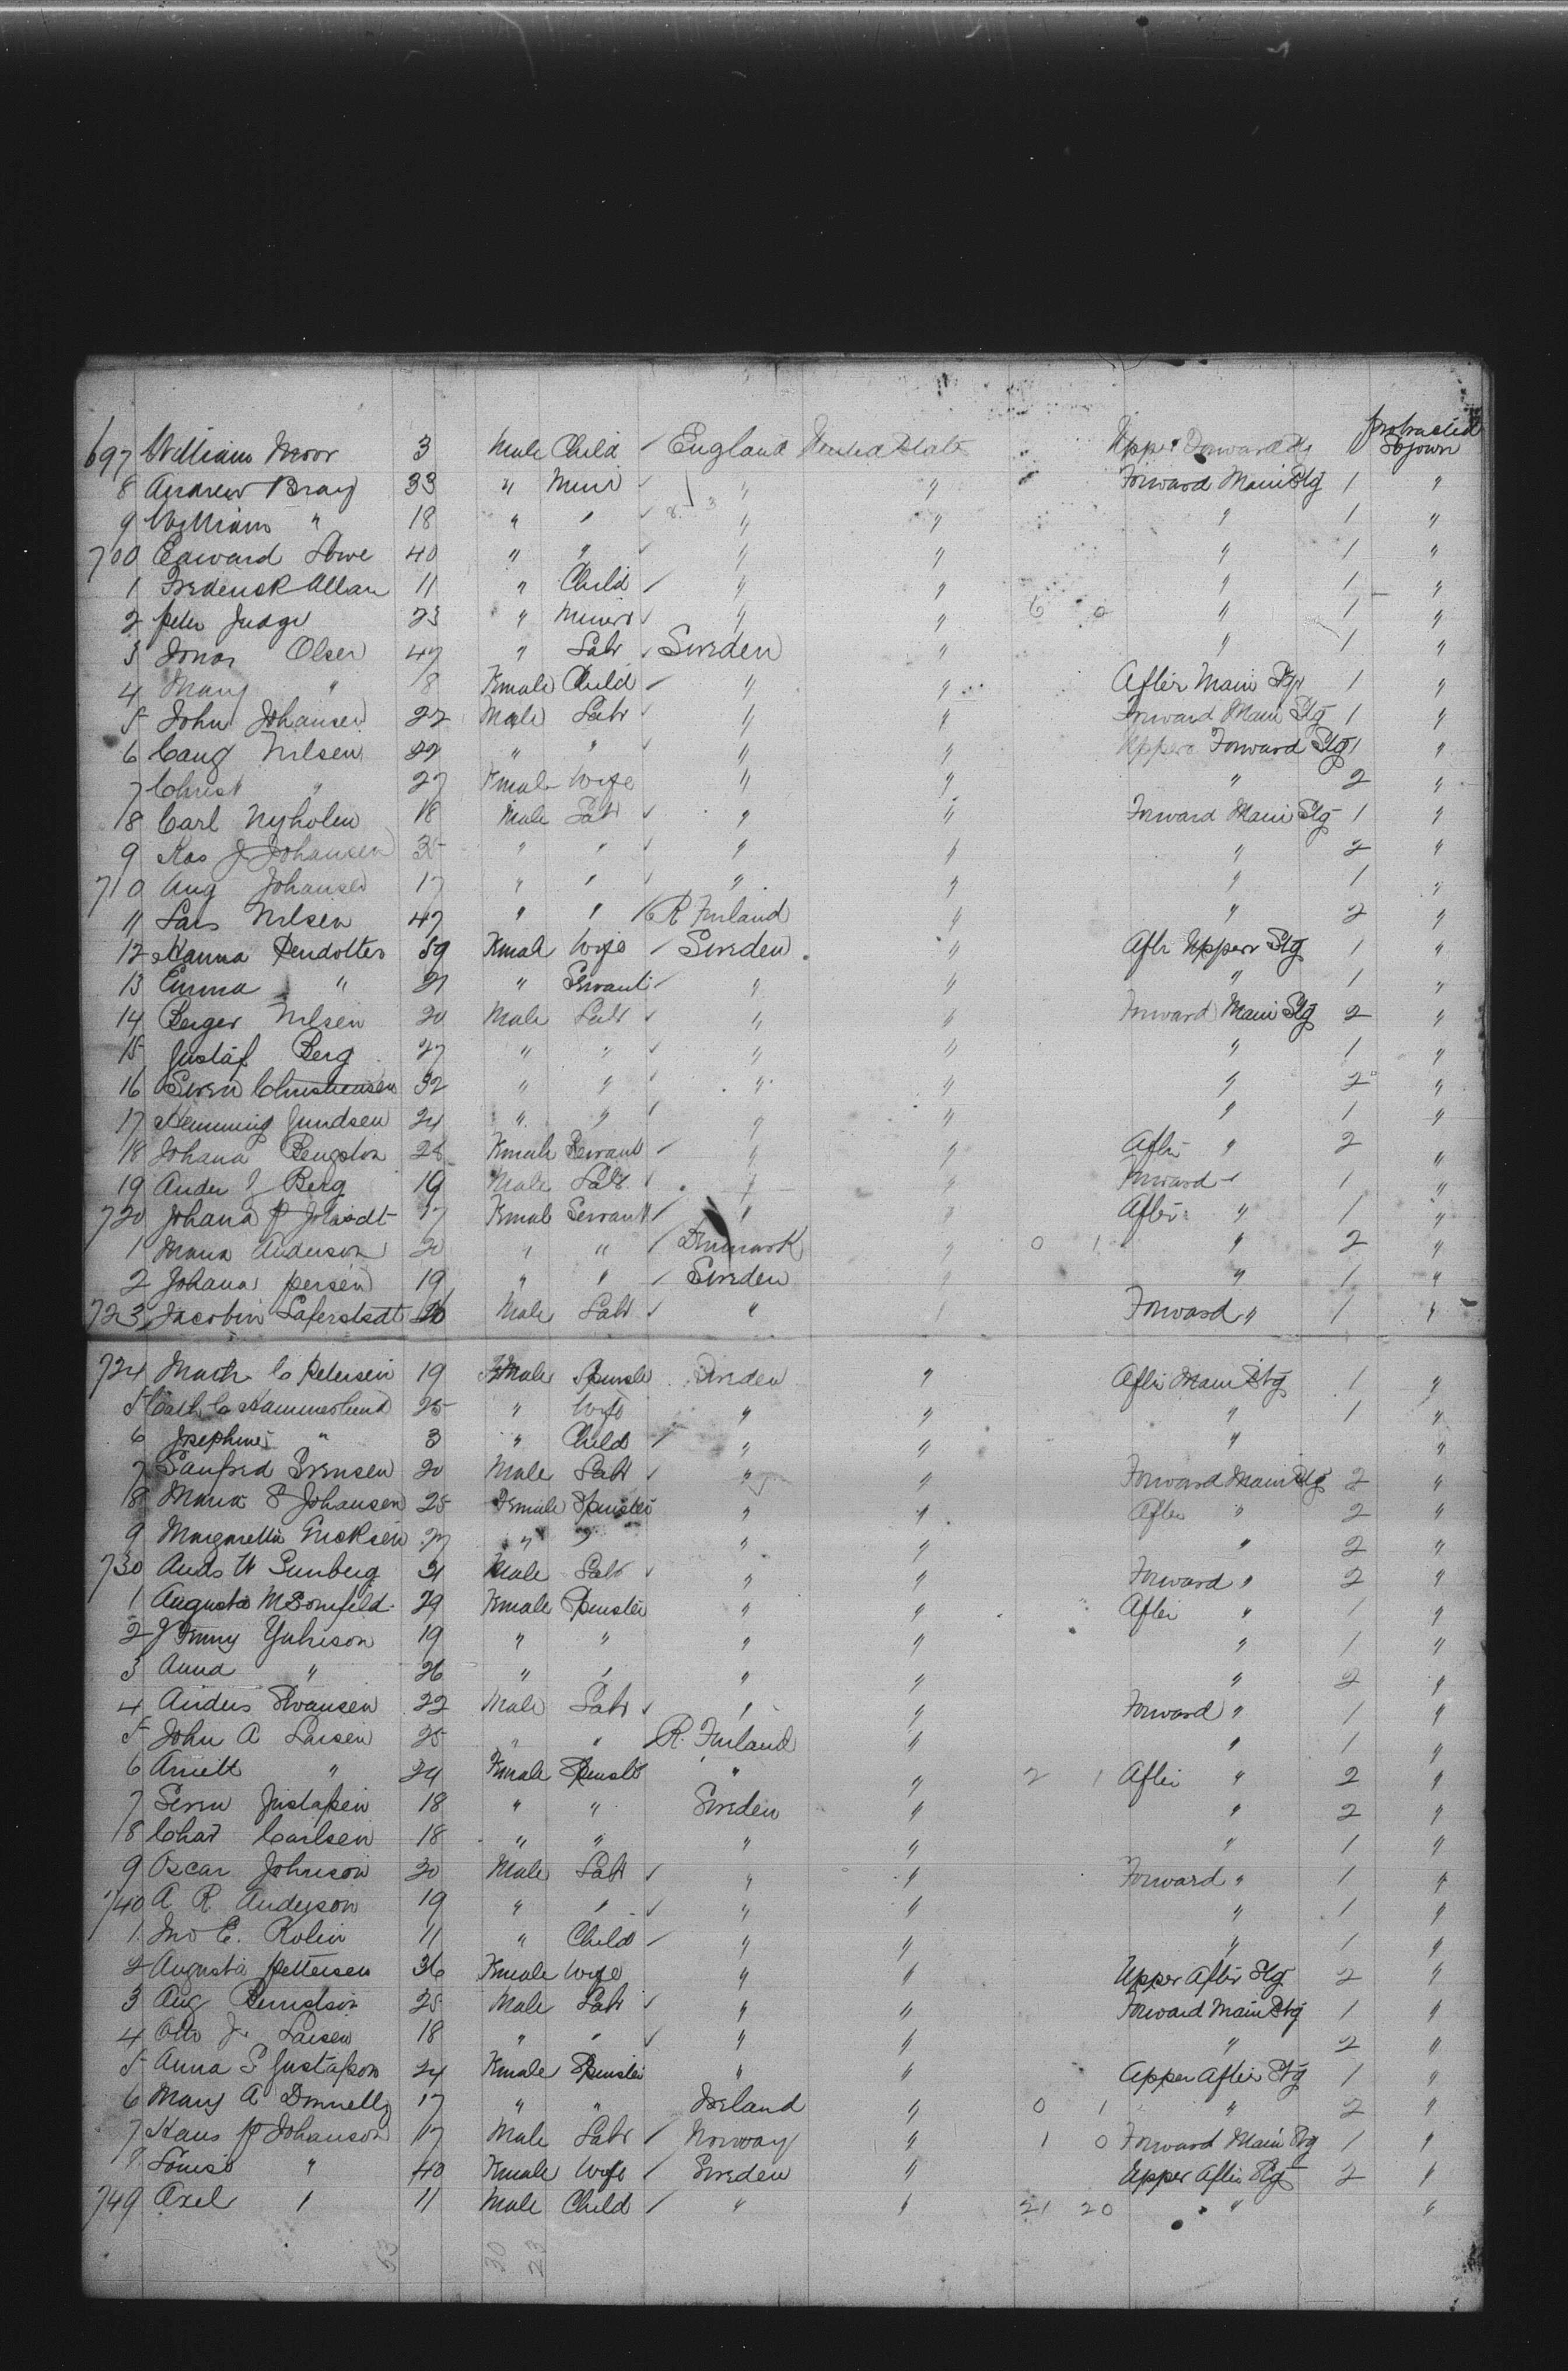 protracted
697 William Moor 3 Male Child ✓ England United State Upper Forward Stg 1 Sojourn
8 Andrew Bray 33 " Miner ✓ " " Forward Main Stg 1 "
9 William " 18 " " ✓ " " " 1 "
700 Edward Lowe 40 " " ✓ " " " 1 "
1 Frederick Allan 11 " Child ✓ " " " 1 "
2 Peter Judge 23 " Miner ✓ " " 6 0 " 1 "
3 Jonas Olsen 47 " Labr ✓ Sweden " " 1 "
4 Mary " 8 Female Child ✓ " " After Main Stg 1 "
5 John Johansen 22 Male Labr ✓ " " Forward Main Stg 1 "
6 Nilsen 22 " " ✓ " " Upper Forward Stg 1 "
7 Christ " 27 Female Wife " " " 2 "
8 Carl Nyholm 18 Male Labr ✓ " " Forward Main Stg 1 "
9 J Johansen 35 " " ✓ " " " 2 "
710 Aug Johansen 17 " " ✓ " " " 1 "
11 Lars Nilsen 47 " " ✓ R Finland " " 2 "
12 Hanna 59 Female Wife ✓ Sweden " Aftr Upper Stg 1 "
13 Emma " 21 " Servant ✓ " " " 1 "
14 Berger Nilsen 20 Male Labr ✓ " " Forward Main Stg 2 "
15 Gustaf Berg 27 " " ✓ " " " 1 "
16 Soren Christiensen 32 " " ✓ " " " 2 "
17 Hemming Gundsen 24 " " ✓ " " " 1 "
18 Johana Bengston 28 Female Servant ✓ " " After " 2 "
19 Ander J Berg 19 Male Labr ✓ " " Forward " 1 "
720 Johana P 17 Female Servant ✓ " " After " 1 "
1 Maria Anderson 20 " " ✓ Denmark " 0 1 " 2 "
2 Johana Persen 19 " " ✓ Sweden " " 1 "
723 Jacobin 26 Male Labr ✓ " " Forward " 1 "
724 C Petersen 19 Female Spinster Sweden " After Main Stg 1 "
5 Cath C Hammerlund 25 " Wife " " " 1 "
6 Josephine " 3 " Child ✓ " " " "
7 Sanfred Svensen 20 Male Labr ✓ " " Forward Main Stg 2 "
8 Maria S Johansen 25 Female Spinster " " After " 2 "
9 Margaretta Ericksen 27 " " " " " 2 "
730 Ands W Sunberg 21 Male Labr ✓ " " Forward " 2 "
1 Augusta M 29 Female Spinster " " After " 1 "
2 19 " " " " " 1 "
3 Anna " 26 " " " " " 2 "
4 Anders Swansen 22 Male Labr ✓ " " Forward " 1 "
5 John A Larsen 25 " " R. Finland " " 1 "
6 " 24 Female Spinster " " 2 1 After " 2 "
7 Gustafsen 18 " " Sweden " " 2 "
8 Carlsen 18 " " " " " 1 "
9 Oscar Johnson 20 Male Labr ✓ " " Forward " 1 "
740 A R Anderson 19 " " ✓ " " " 1 "
1 Jno E. Rolin 11 " Child ✓ " " " 1 "
2 Augusta Pettersen 36 Female Wife " " Upper After Stg 2 "
3 Aug 25 Male Labr ✓ " " Forward Main Stg 1 "
4 Otto J. Larsen 18 " " ✓ " " " 2 "
5 Anna S Gustafson 24 Female Spinster " " Upper After Stg 1 "
6 Mary A Donnelly 17 " " Ireland " 0 1 " 2 "
7 Hans P Johanson 17 Male Labr ✓ Norway " 1 0 Forward Main Stg 1 "
8 Louisa " 40 Female Wife ✓ Sweden " Upper After Stg 2 "
749 Axel " 11 Male Child ✓ " " 21 20 " "
53 30 23